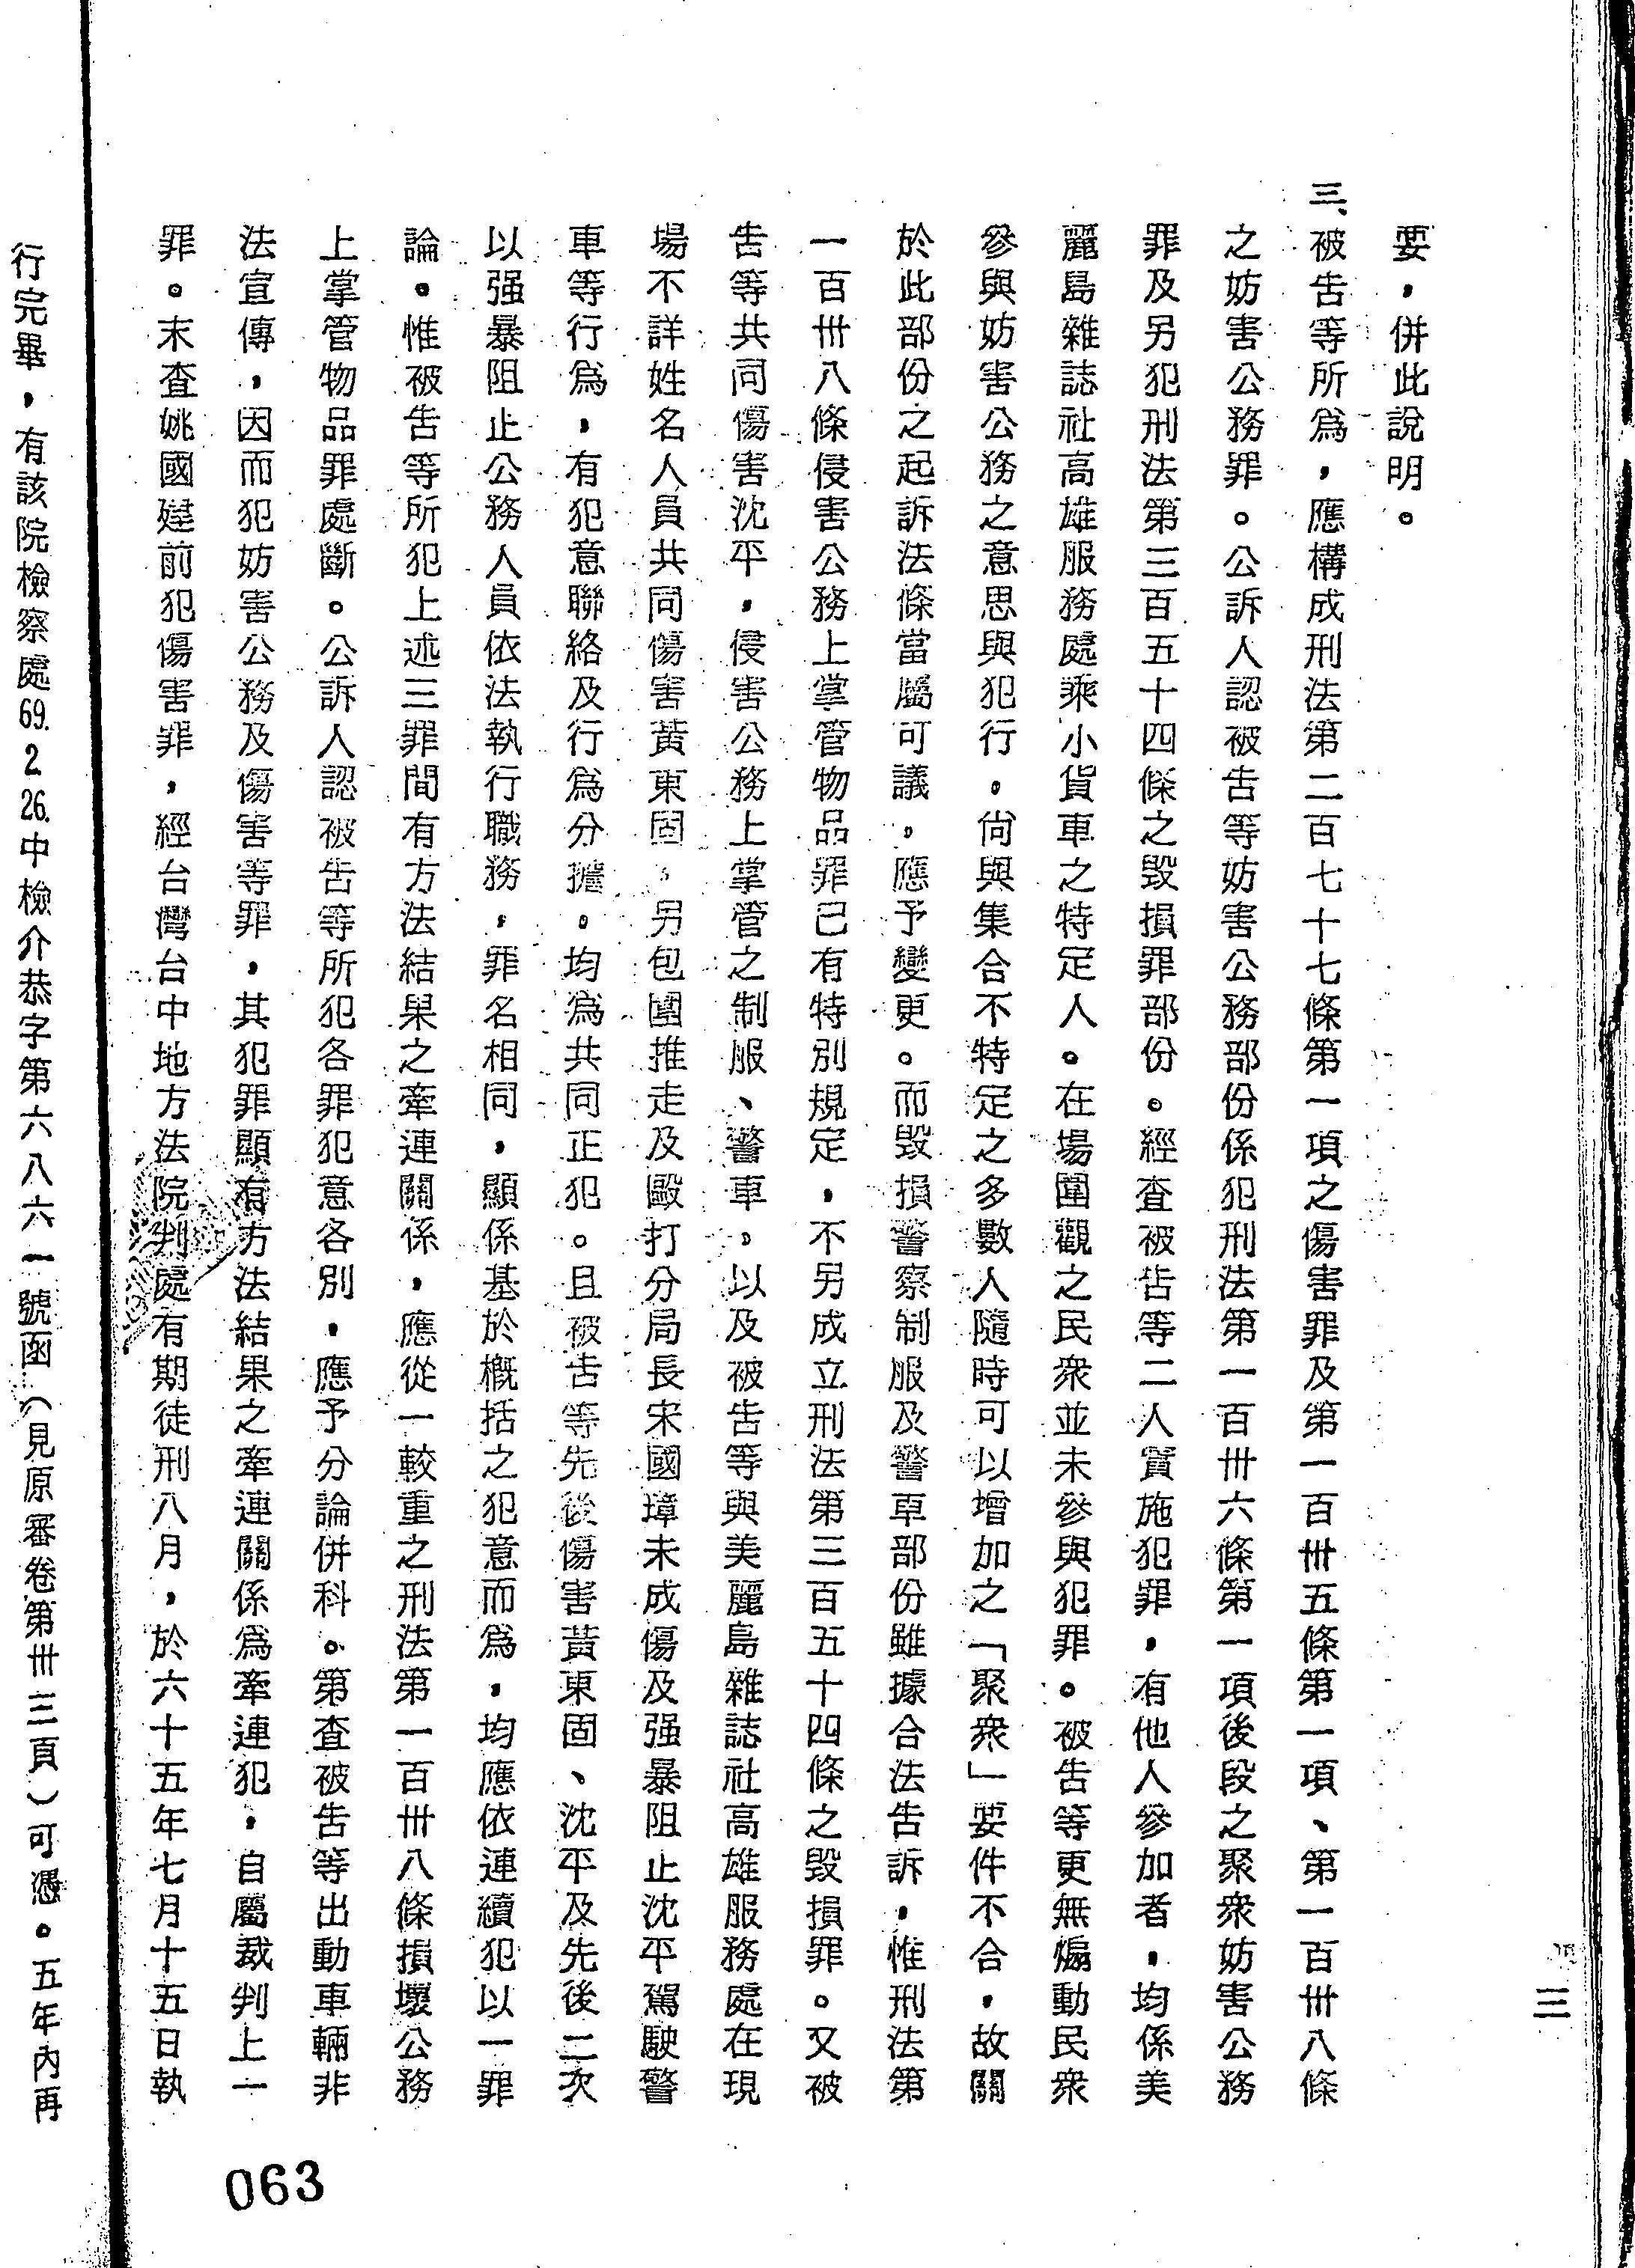 要，併此說明。
三、被告等所為，應構成刑法第二百七十七條第一項之傷害罪及第一百卅五條第一項、第一百卅八條
之妨害公務罪。公訴人認被告等妨害公務部份係犯刑法第一百卅六條第一項後段之聚衆妨害公務
罪及另犯刑法第三百五十四條之毀損罪部份。經查被告等二人實施犯罪，有他人參加者，均係美
麗島雜誌社高雄服務處乘小貨車之特定人。在場圍觀之民衆並未參與犯罪。被告等更無煽動民衆
參與妨害公務之意思與犯行。尚與集合不特定之多數人隨時可以增加之「聚衆」要件不合，故關
於此部份之起訴法條當屬可議，應予變更。而毀損警察制服及警車部份雖據合法告訴，惟刑法第
一百卅八條侵害公務上掌管物品罪已有特別規定，不另成立刑法第三百五十四條之毀損罪。又被
告等共同傷害沈平，侵害公務上掌管之制服、警車，以及被告等與美麗島雜誌社高雄服務處在現
場不詳姓名人員共同傷害黃東固，另包圍推走及毆打分局長宋國璋未成傷及强暴阻止沈平駕駛警
車等行為，有犯意聯絡及行為分擔。均為共同正犯。且被告等先後傷害黃東固、沈平及先後二次
以强暴阻止公務人員依法執行職務，罪名相同，顯係基於概括之犯意而為，均應依連續犯以一罪
論。惟被告等所犯上述三罪間有方法結果之牽連關係，應從一較重之刑法第一百卅八條損壞公務
上掌管物品罪處斷。公訴人認被告等所犯各罪犯意各別，應予分論併科。第查被告等出動車輛非
法宣傳，因而犯妨害公務及傷害等罪，其犯罪顯有方法結果之牽連關係為牽連犯，自屬裁判上一
罪。末查姚國建前犯傷害罪，經台灣台中地方法院判處有期徒刑八月，於六十五年七月十五日執
行完畢，有該院檢察處69.2.26.中檢介恭字第六八六一號函（見原審卷第卅三頁）可憑。五年內再
三
063